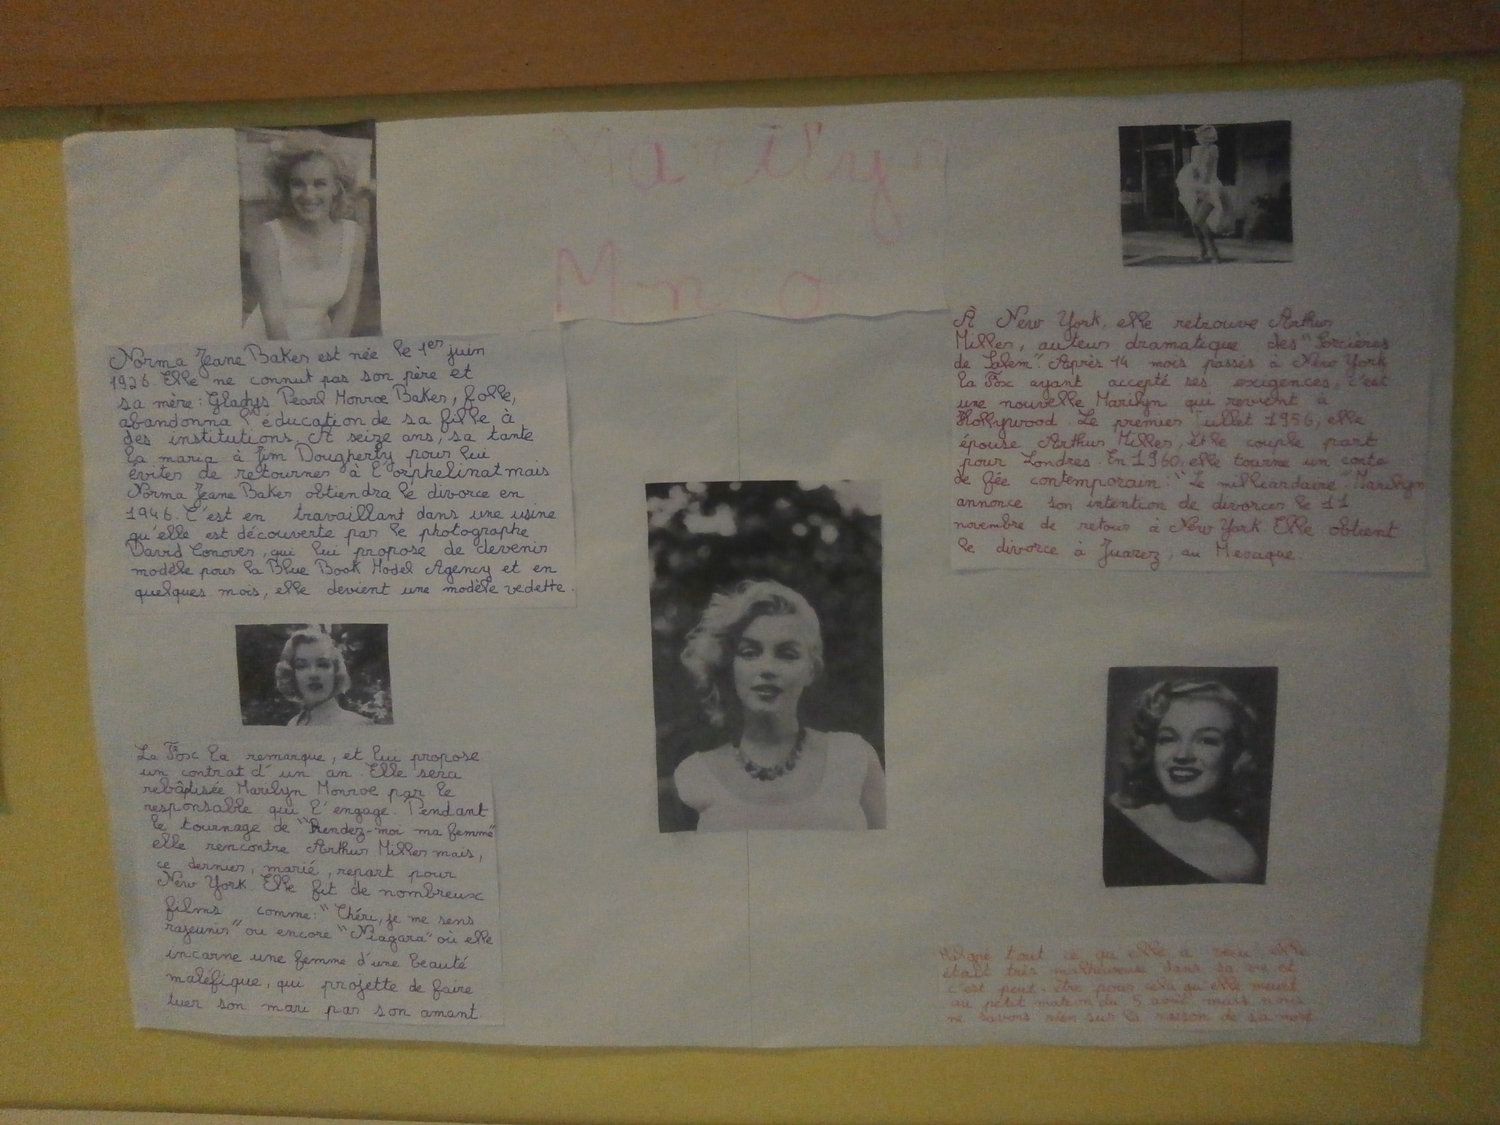 Marilyn
Monro
Norma Jeane Baker est née le 1er juin
1926. Elle ne connut pas son père et
sa mère: Gladys Pearl Monroe Baker, folle,
abandonna l'éducation de sa fille à
des institutions. A seize ans, sa tante
la maria à Jim Dougherty pour lui
éviter de retourner à l'orphelinat mais
Norma Jeane Baker obtiendra le divorce en
1946. C'est en travaillant dans une usine
qu'elle est découverte par le photographe
David Conover, qui lui propose de devenir
modèle pour la Blue Book Model Agency et en
quelques mois, elle devient une modèle vedette.
La Fox la remarque, et lui propose
un contrat d'un an. Elle sera
rebaptisée Marilyn Monroe par le
responsable qui l'engage. Pendant
le tournage de "Rendez-moi ma femme"
elle rencontre Arthur Miller mais,
ce dernier, marié, repart pour
New York. Elle fit de nombreux
films comme: "Chéri, je me sens
rajeunir" ou encore "Niagara" où elle
incarne une femme d'une beauté
maléfique, qui projette de faire
tuer son mari par son amant.
A New York, elle retrouve Arthur
Miller, auteur dramatique des "Sorcières
de Salem". Après 14 mois passés à New York
la Fox ayant accepté ses exigences, c'est
une nouvelle Marilyn qui revient à
Hollywood. Le premier Juillet 1956, elle
épouse Arthur Miller, et le couple part
pour Londres. En 1960, elle tourne un conte
de fée contemporain: "Le milliardaire". Marilyn
annonce son intention de divorcer le 11
novembre de retour à New York. Elle obtient
le divorce à Juarez, au Mexique.
Malgré tout ce qu'elle a vécu, elle
était très malheureuse dans sa vie et
c'est peut-être pour cela qu'elle meurt
au petit matin du 5 août mais nous
ne savons rien sur la raison de sa mort.